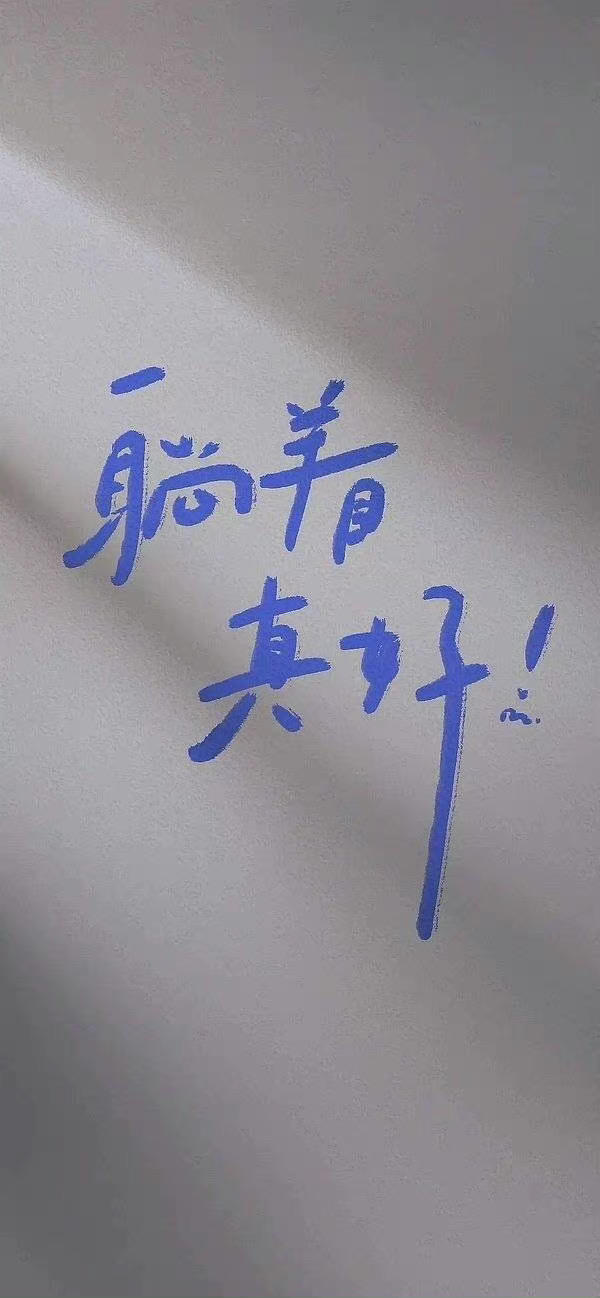 躺着
真好!